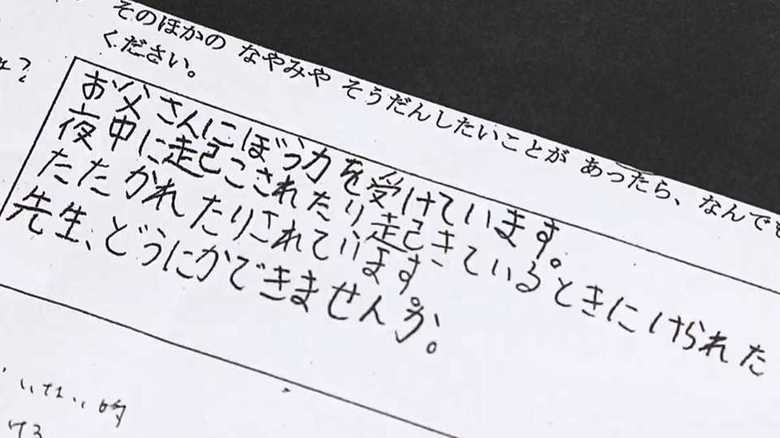 そのほかの なやみや そうだんしたいことが あったら、なんでも
ください。
お父さんにぼう力を受けています。
夜中に起こされたり起きているときにけられた
たたかれたりされています。
先生、どうにかできませんか。
的
ける